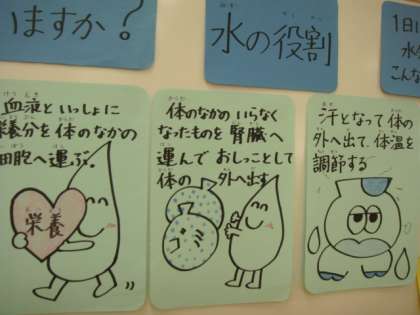 ますか？
水の役割
1日に
水分
こんな
血液といっしょに
栄養分を体のなかの
細胞へ運ぶ。
栄養
体のなかのいらなく
なったものを腎臓へ
運んでおしっことして
体の外へ出す
ゴミ
汗となって体の
外へ出て、体温を
調節する